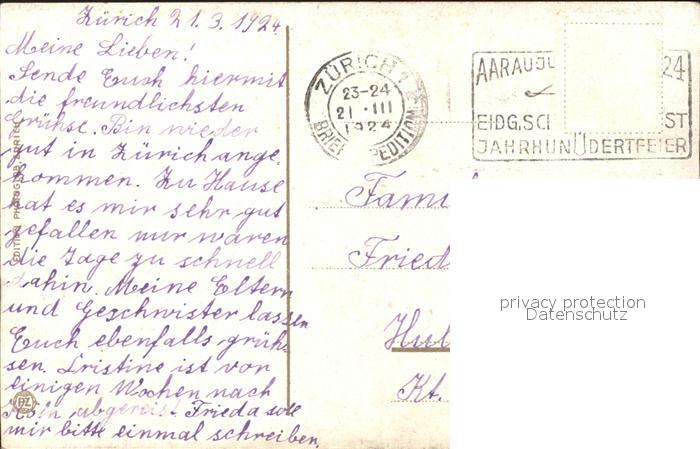 Zürich 21.3.1924.
Meine Lieben!
Sende Euch hiermit
die freundlichsten
Grühse. Bin wieder
gut in Zürich ange,
kommen. Zu Hause
hat es mir sehr gut
gefallen nur waren
die Tage zu schnell
dahin. Meine Eltern
und Geschwister lassen
Euch ebenfalls grüh-
sen. Cristine ist vor
einigen Wochen nach
Köln abgereist. Frieda solle
mir bitte einmal schreiben.
EDITION PHOTOGLOB ZÜRICH
PZ
ZÜRICH 1
23-24
21.III
1924
BRIEF EXPEDITION
AARAU JU 24
EIDG. SC ST
JAHRHUNDERTFEIER
Fami
Fried
Kt.
privacy protection
Datenschutz